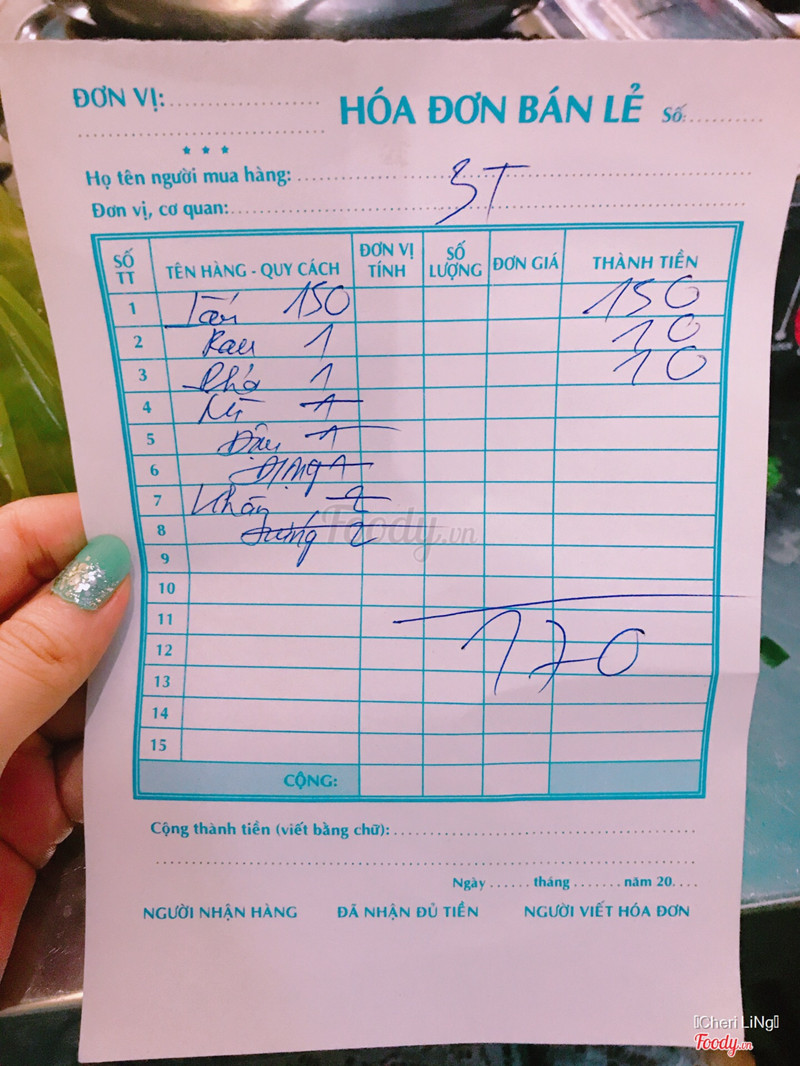 ĐƠN VỊ:
HÓA ĐƠN BÁN LẺ Số:
Họ tên người mua hàng: ST
Đơn vị, cơ quan:
SỐ TT TÊN HÀNG - QUY CÁCH ĐƠN VỊ TÍNH SỐ LƯỢNG ĐƠN GIÁ THÀNH TIỀN
1 150 150
2 Rau 1 10
3 1 10
4 Mì 1
5 Đậu 1
6 1
7 Khăn 2
8 2
9
10
11
12 170
13
14
15
CỘNG:
Cộng thành tiền (viết bằng chữ):
Ngày tháng năm 20
NGƯỜI NHẬN HÀNG ĐÃ NHẬN ĐỦ TIỀN NGƯỜI VIẾT HÓA ĐƠN
Foody.vn
Cheri LiNg
Foody.vn